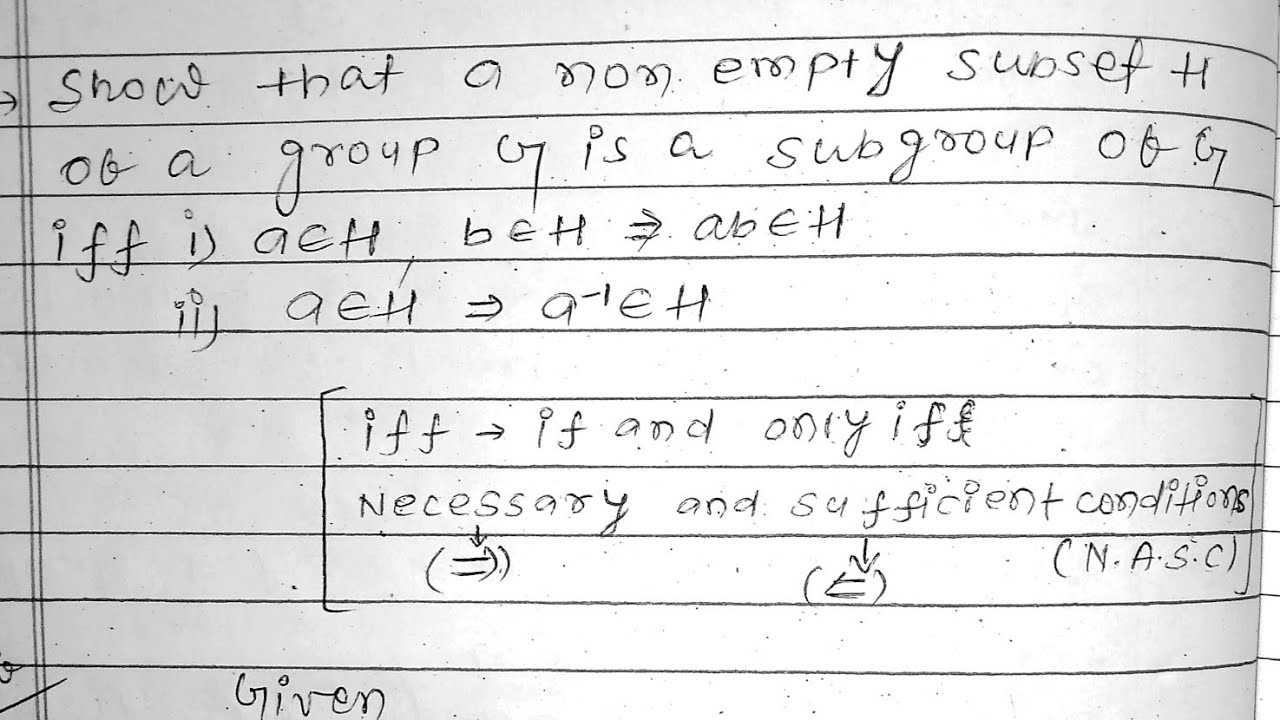 → Show that a non empty subset H
of a group G is a subgroup of G
iff i) a∈H, b∈H ⇒ ab∈H
ii) a∈H ⇒ a⁻¹∈H
[iff → if and only iff
Necessary and sufficient conditions
(⇒) (⇐) (N.A.S.C)]
Given